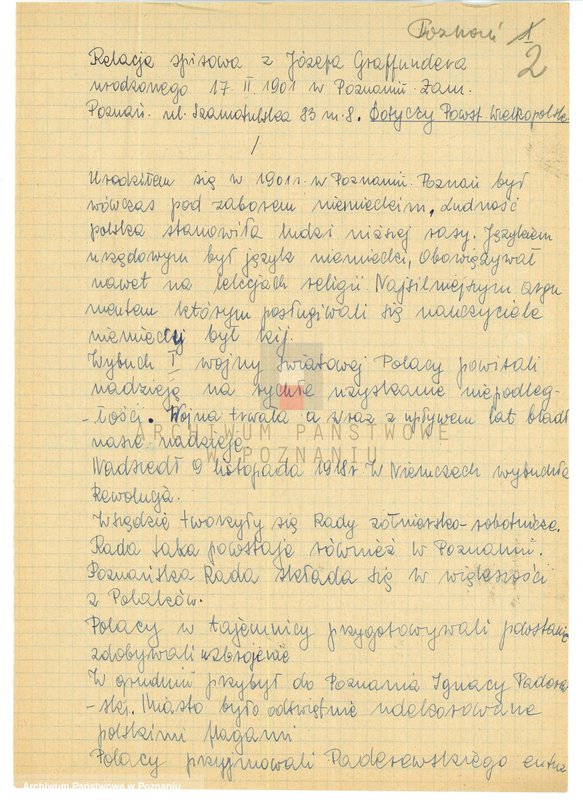 Poznań 1/2
Relacja spisowa z Józefa Graffundera
urodzonego 17. II 1901 w Poznaniu. Zam.
Poznań. ul. Szamotulska 83 m. 8. Dotyczy Powst. Wielkopolski
/
Urodziłem się w 1901 r. w Poznaniu. Poznań był
wówczas pod zaborem niemieckim, ludność
polska stanowiła ludzi niższej rasy. Językiem
urzędowym był język niemiecki, obowiązywał
nawet na lekcjach religii. Najsilniejszym argu
mentem którym posługiwali się nauczyciele
niemieccy był kij.
Wybuch I wojny światowej Polacy powitali
nadzieją na rychłe uzyskanie niepodleg-
-łości. Wojna trwała a wraz z upływem lat bladł
nasze nadzieje
ARCHIWUM PAŃSTWOWE
W POZNANIU
Nadszedł 9 listopada 1918 r. W Niemczech wybuchła
Rewolucja.
Wszędzie tworzyły się Rady żołniersko-robotnicze.
Rada taka powstaje również w Poznaniu.
Poznańska Rada składa się w większości
z Polaków.
Polacy w tajemnicy przygotowywali powstanie
zdobywali uzbrojenie
W grudniu przybył do Poznania Ignacy Padere
-ski. Miasto było odświętnie udekorowane
polskimi flagami
Polacy przyjmowali Paderewskiego entuz
Archiwum Państwowe w Poznaniu